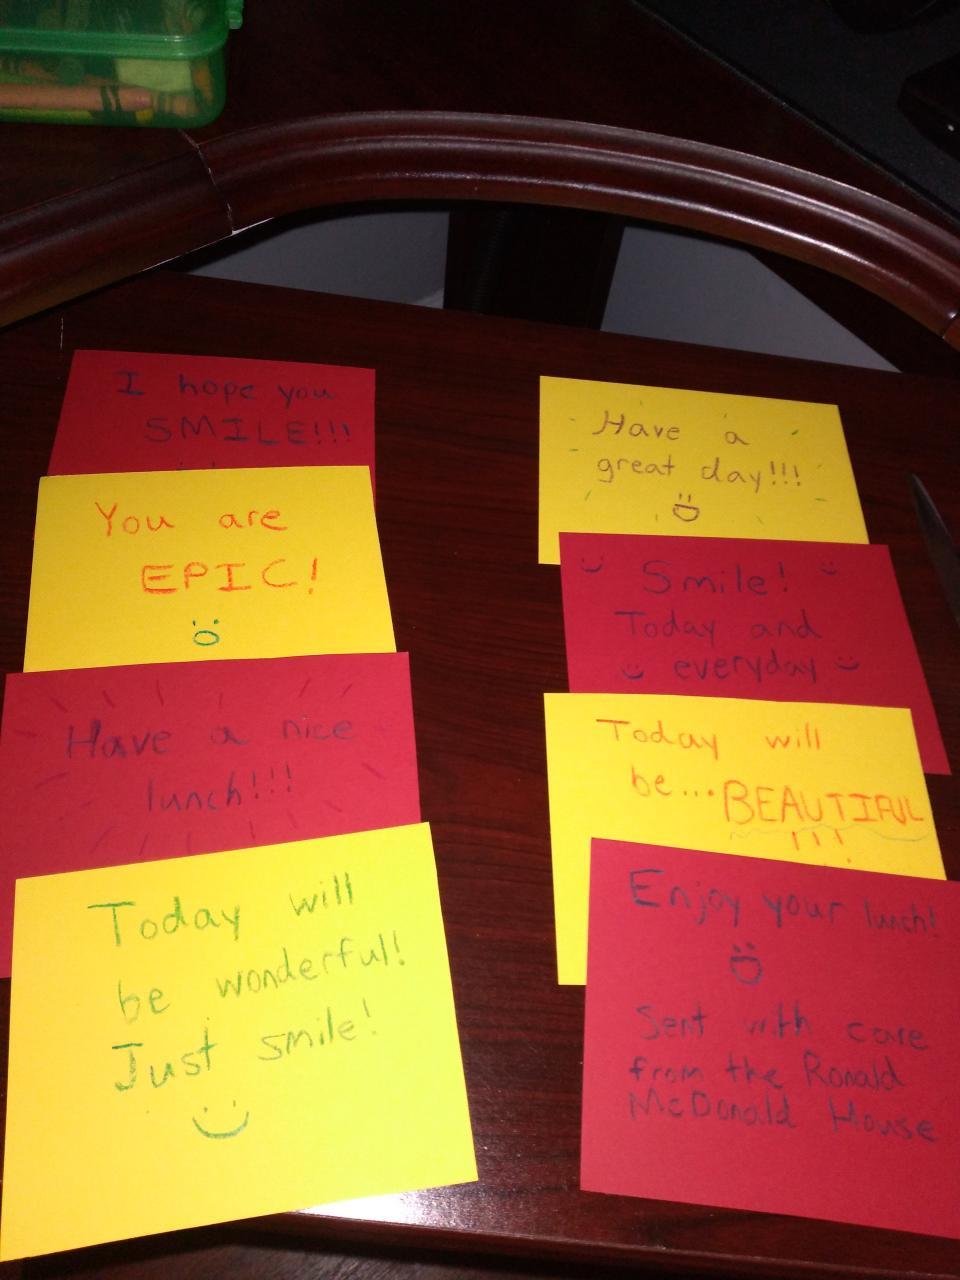 I hope you
SMILE!!!
You are
EPIC!
Have a nice
lunch!!!
Today will
be wonderful!
Just smile!
Have a
great day!!!
Smile!
Today and
everyday
Today will
be...BEAUTIFUL
!!!
Enjoy your lunch!
Sent with care
from the Ronald
McDonald House